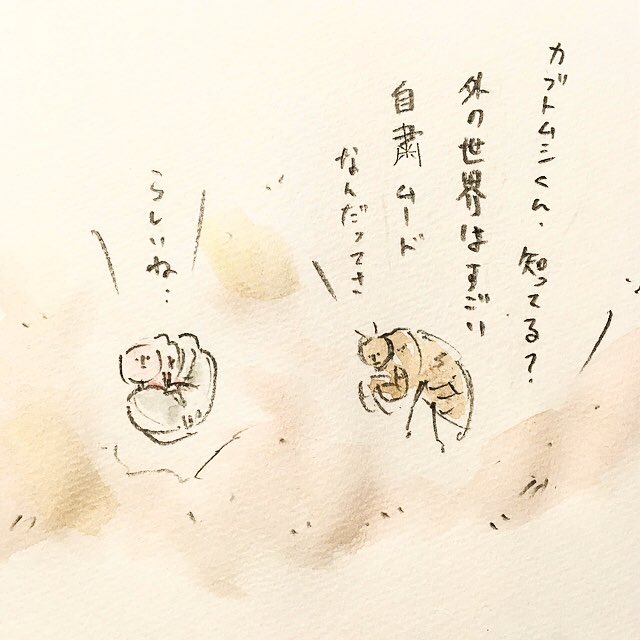 カブトムシくん、知ってる？
外の世界はすごい
自粛ムード
なんだってさ
らしいね‥